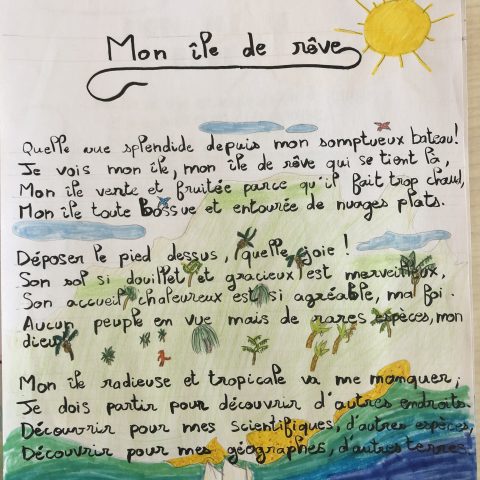 Mon île de rêve
Quelle vue splendide depuis mon somptueux bateau!
Je vois mon île, mon île de rêve qui se tient là,
Mon île verte et fruitée parce qu'il fait trop chaud,
Mon île toute bossue et entourée de nuages plats.
Déposer le pied dessus, quelle joie !
Son sol si douillet et gracieux est merveilleux,
Son accueil chaleureux est si agréable, ma foi.
Aucun peuple en vue mais de rares espèces, mon
dieu.
Mon île radieuse et tropicale va me manquer;
Je dois partir pour découvrir d'autres endroits.
Découvrir pour mes scientifiques, d'autres espèces,
Découvrir pour mes géographes, d'autres terres.